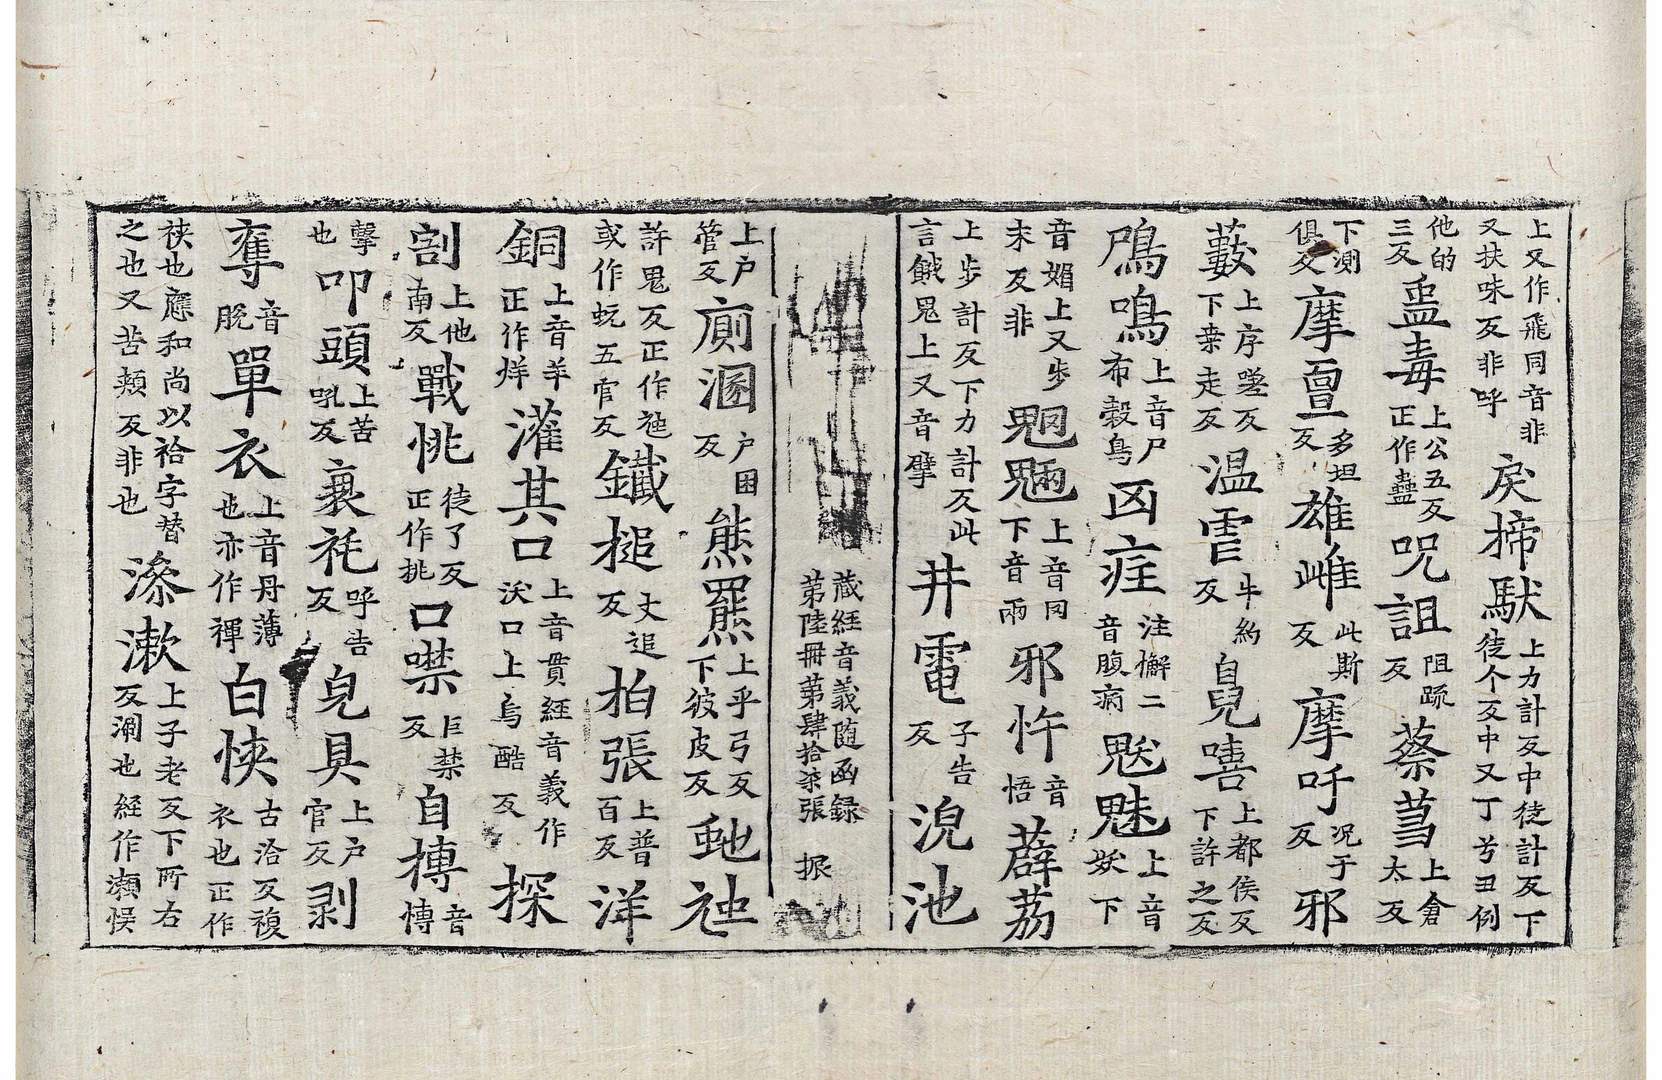 上又作飛同音非又扶味反非呼戾揥馱上力計反中徒計反下徒个反中又丁兮丑例
他的三反蛊毒上公五反正作蠱呪詛阻疏反蔡蒭上倉太反
下測俱反摩亶多坦反雄雌此斯反摩吁況于反邪
藪上序嗟反下桒走反温雹牛約反皃嘻上都侯反下許之反
鴈鳴上音尸布穀鳥凶疰注懈二音腹病魃魅上音妖下
音媚上又步末反非魍魎上音冈下音兩邪忤音悟薜荔
上步計反下力計反此言餓鬼上又音擘井竈子告反涀池
藏經音義随函録
第陸冊第肆拾柒張 振
上户管反廁溷户困反熊羆上乎弓反下彼皮反虵虵
許鬼反正作虺或作蚖五官反鐵槌丈追反拍張上普百反洋
銅上音羊正作烊灌其口上音貫經音義作沃口上烏酷反探
割上他南反戰恌徒了反正作挑口噤巨禁反自摶音慱
擊也叩頭上苦吼反裹毦呼告反皃具上户官反剥
奪音脫單衣上音丹薄也亦作襌白㤲古洽反複衣也正作
裌也應和尚以袷字替之也又苦頰反非也澡漱上子老反下所右反漱也經作瀬悮